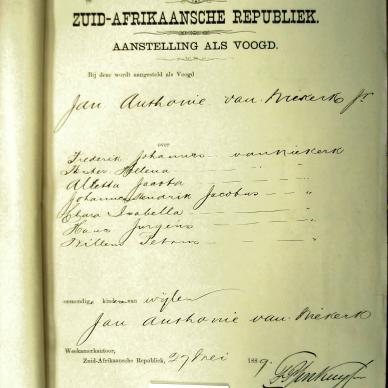 ZUID-AFRIKAANSCHE REPUBLIEK.
AANSTELLING ALS VOOGD.
Bij deze wordt aangesteld als Voogd
Jan Anthonie van Niekerk Jr
over
Frederik Johannes van Niekerk
Helena "
Aletta "
Johannes Hendrik Jacobus "
Isabella "
Hans Jurgens "
Willem Petrus "
onmondige kinderen van wijlen
Jan Anthonie van Niekerk
Weeskamerkantoor,
Zuid-Afrikaansche Republiek, 27 Mei 1889.